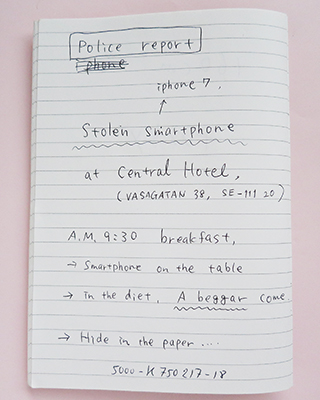 Police report
iphone
iphone 7.
↑
Stolen smartphone
at Central Hotel,
(VASAGATAN 38, SE-111 20)
A.M. 9:30 breakfast,
→ Smartphone on the table
→ In the diet, A beggar come
→ Hide in the paper ....
5000-K750217-18